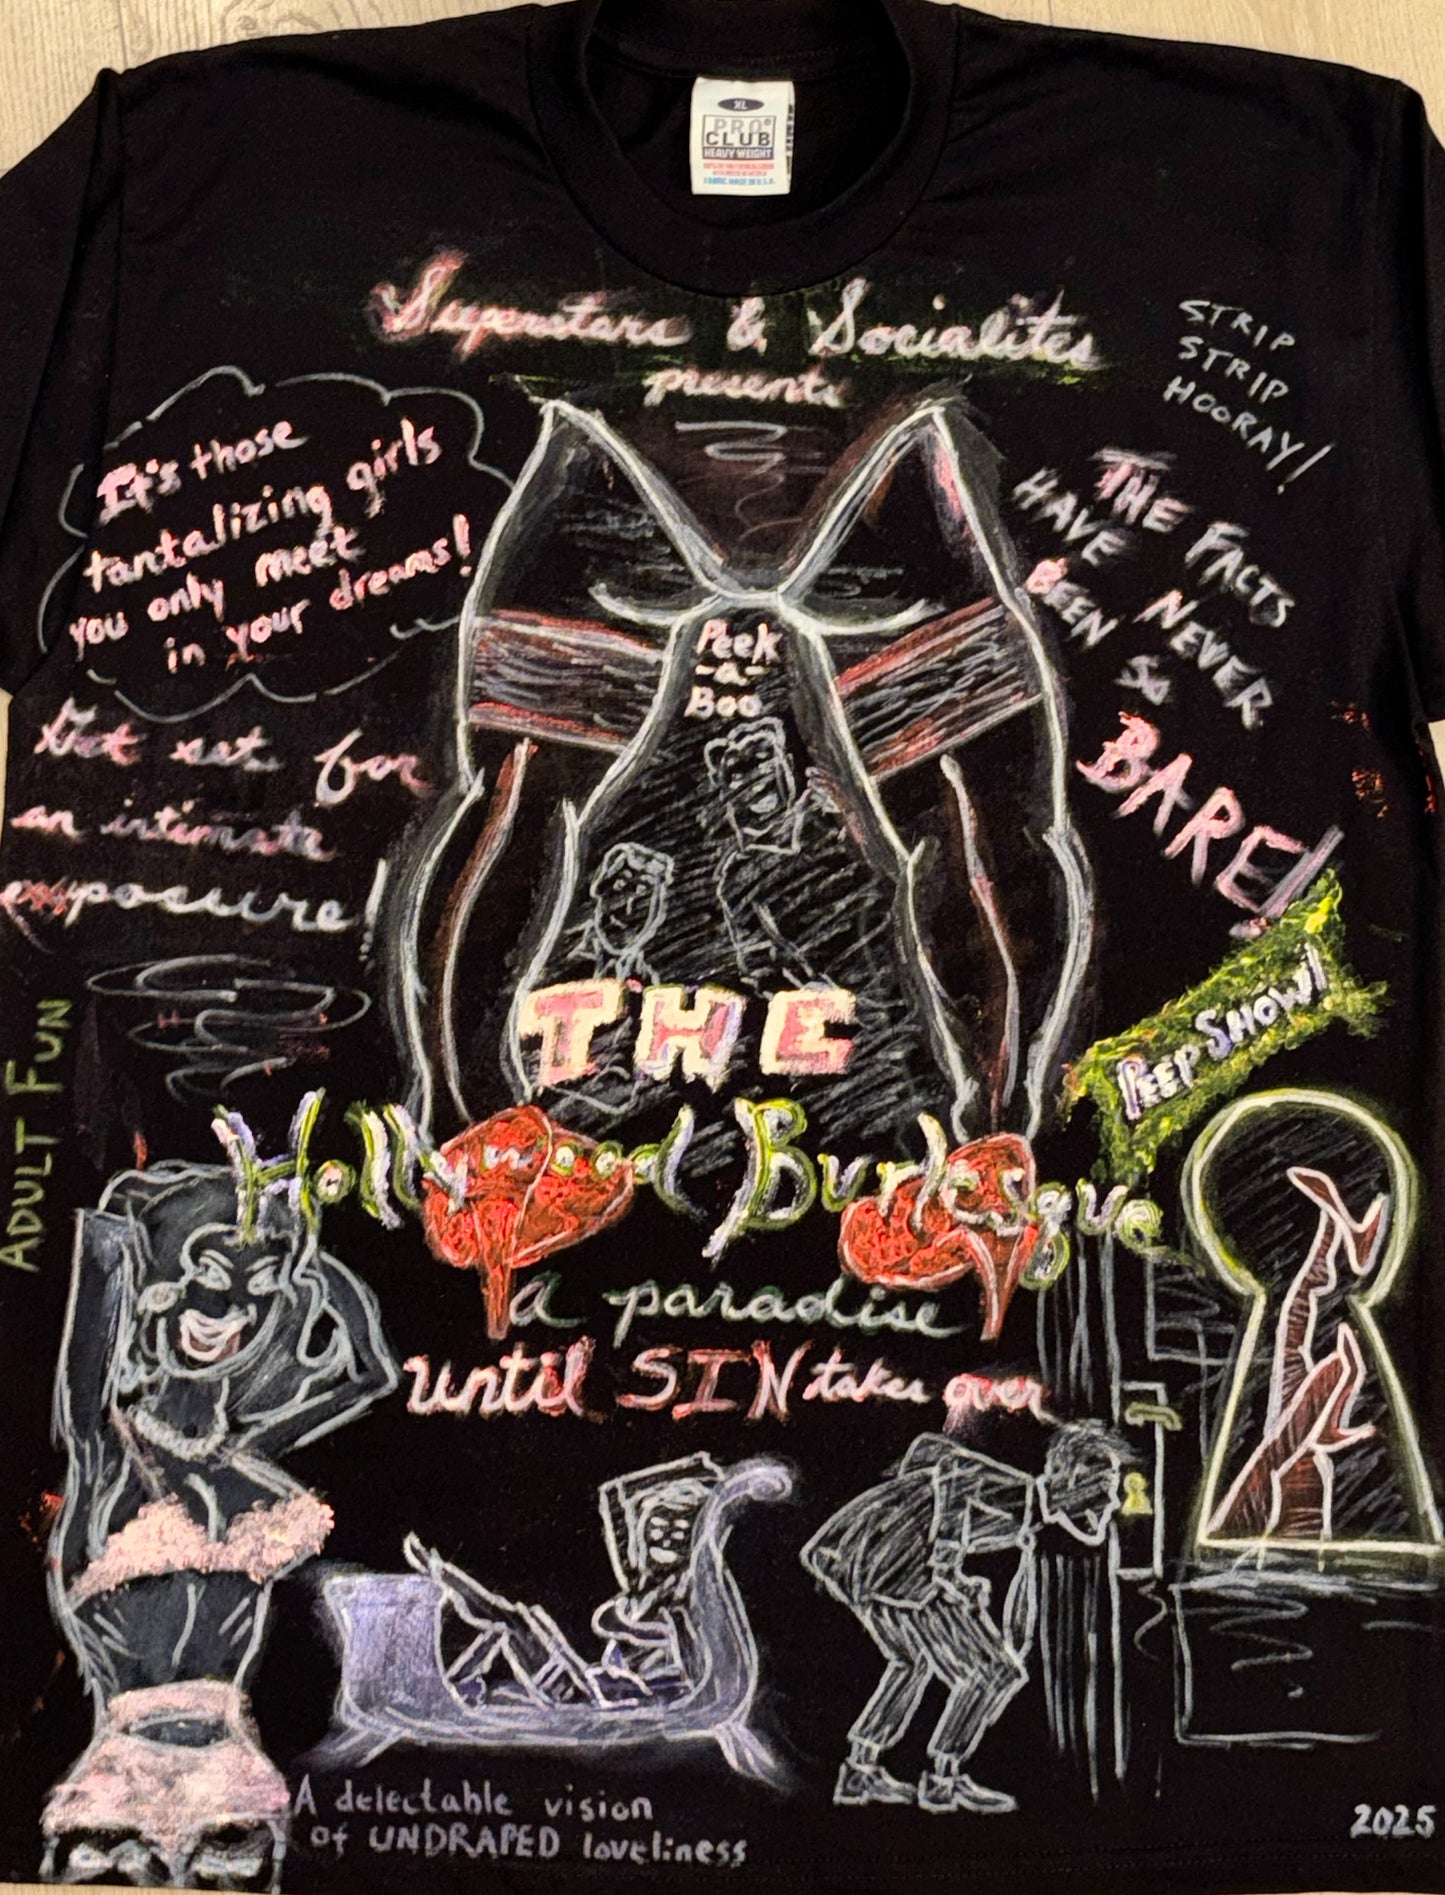 XL
PRO
CLUB
HEAVY WEIGHT
Superstars & Socialites
presents
STRIP
STRIP
HOORAY!
It's those
tantalizing girls
you only meet
in your dreams!
THE FACTS
HAVE NEVER
BEEN SO
BARE!
Peek
-a-
Boo
Get set for
an intimate
exposure!
PEEP SHOW!
ADULT FUN
THE
Hollywood Burlesque
a paradise
until SIN takes over
A delectable vision
of UNDRAPED loveliness
2025